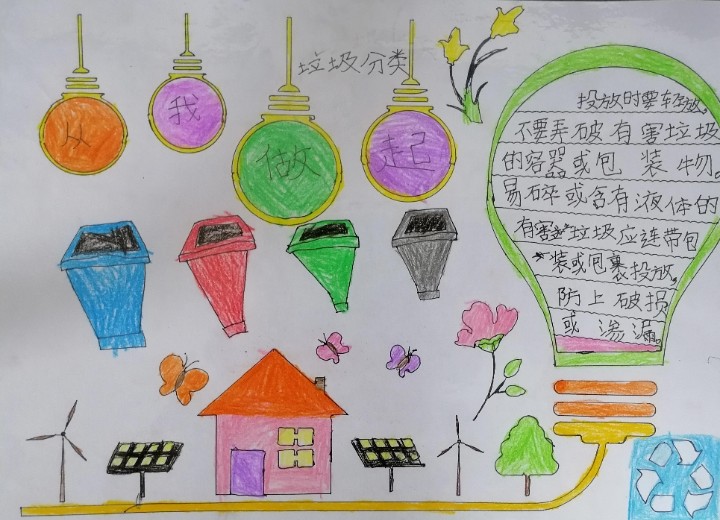 垃圾分类
从
我
做
起
投放时要轻放。
不要弄破有害垃圾
的容器或包装物。
易碎或含有液体的
有害垃圾应连带包
装或包裹投放。
防上破损
或渗漏。